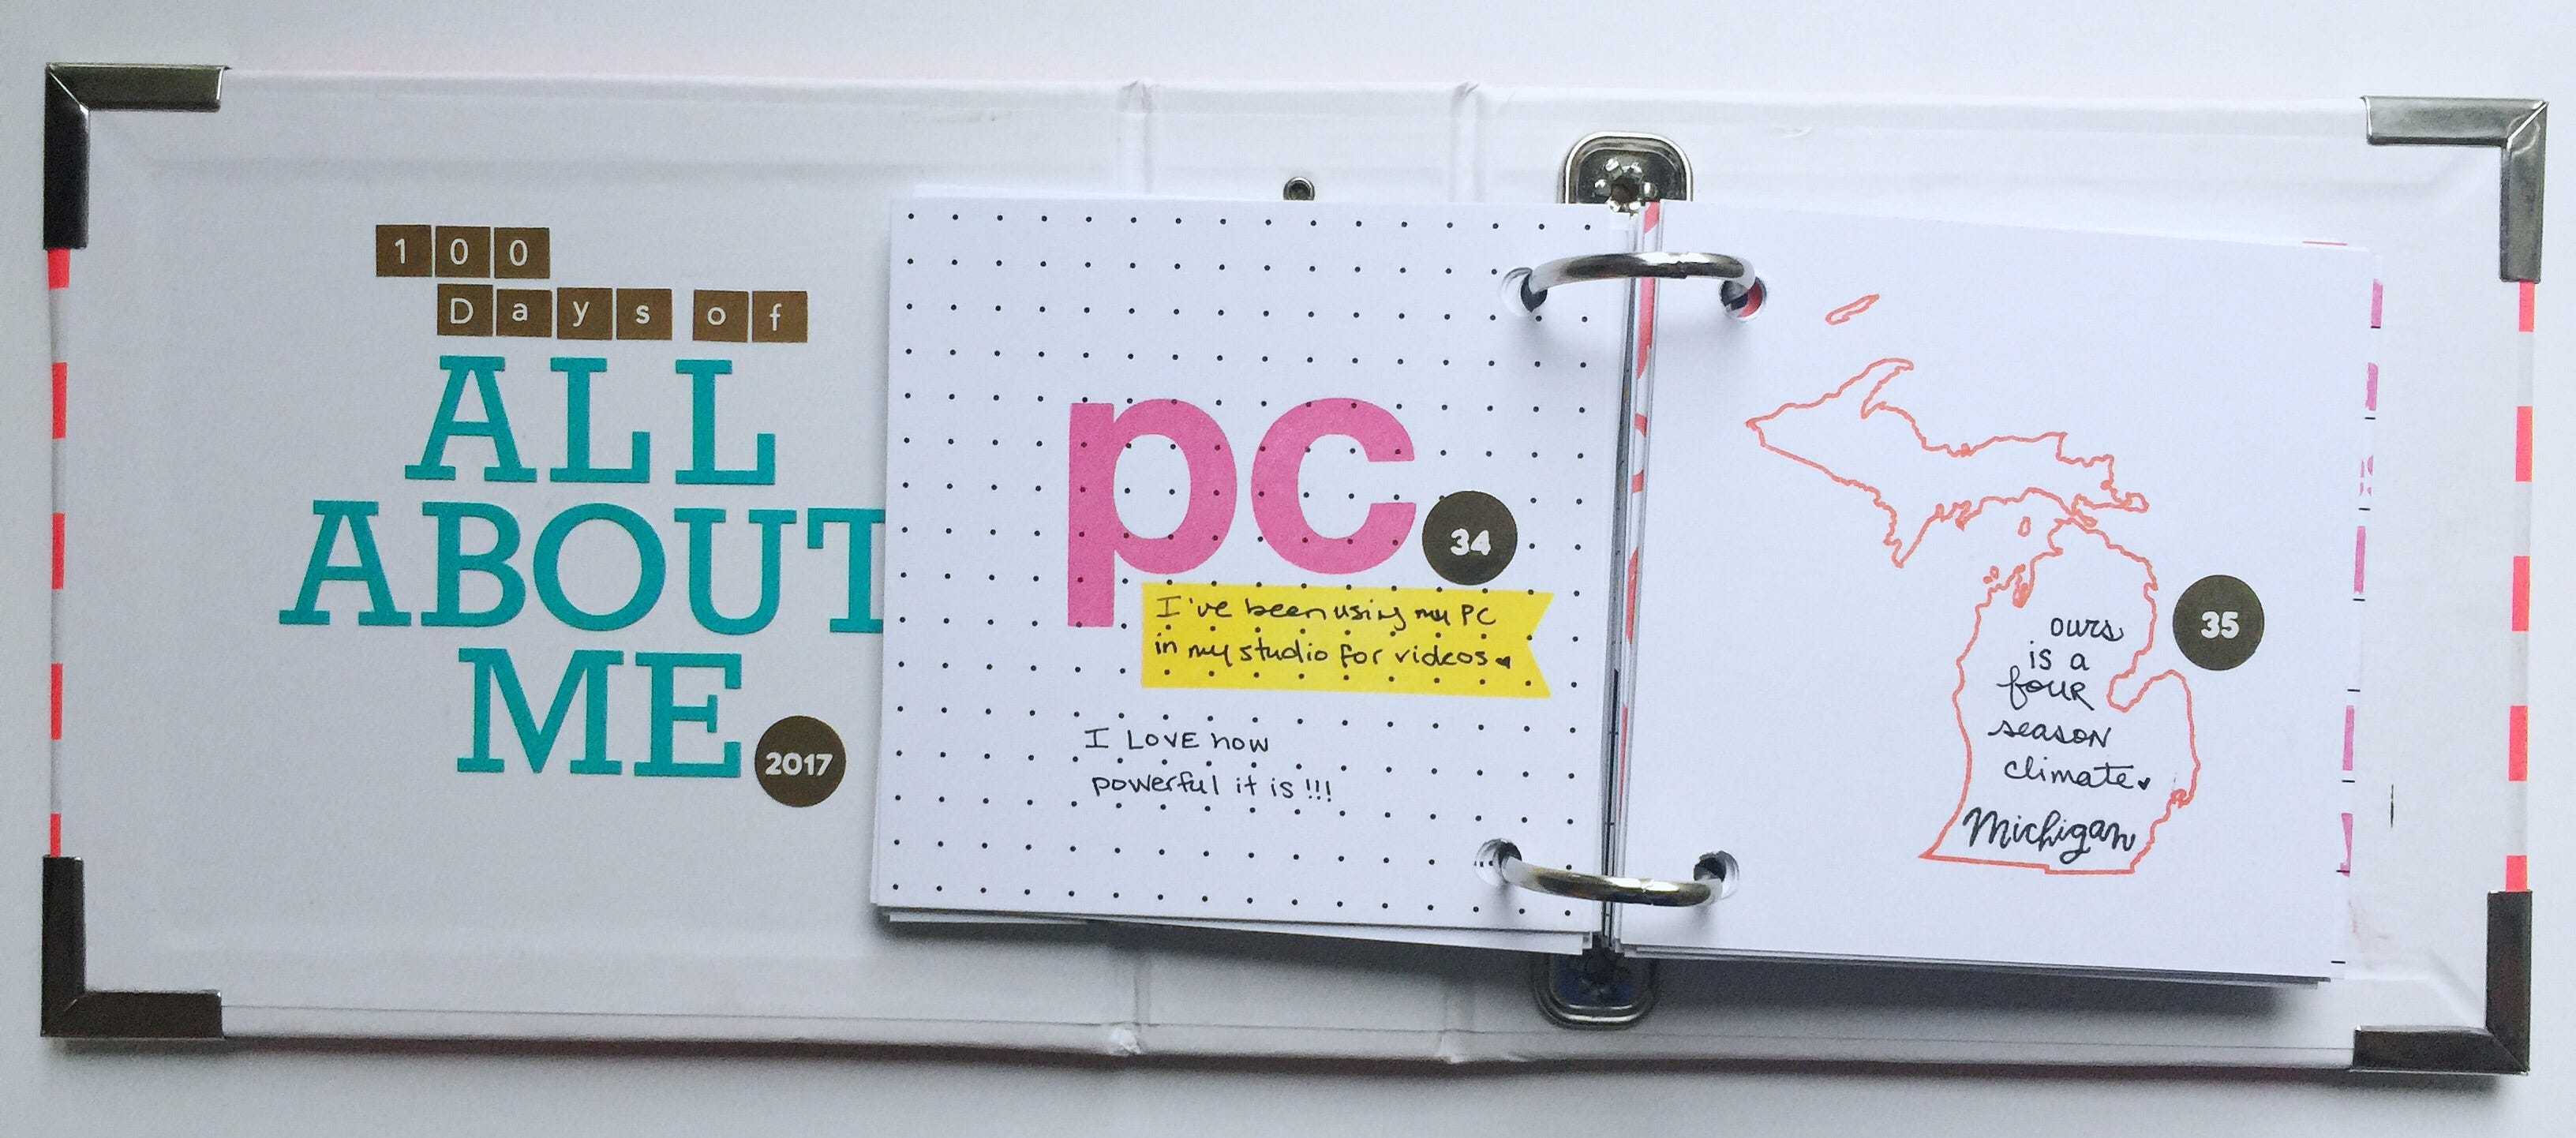 100
Days of
ALL
ABOUT
ME
2017
pc
34
I've been using my PC
in my studio for videos
I LOVE how
powerful it is!!!
ours
is a
four
season
climate
Michigan
35